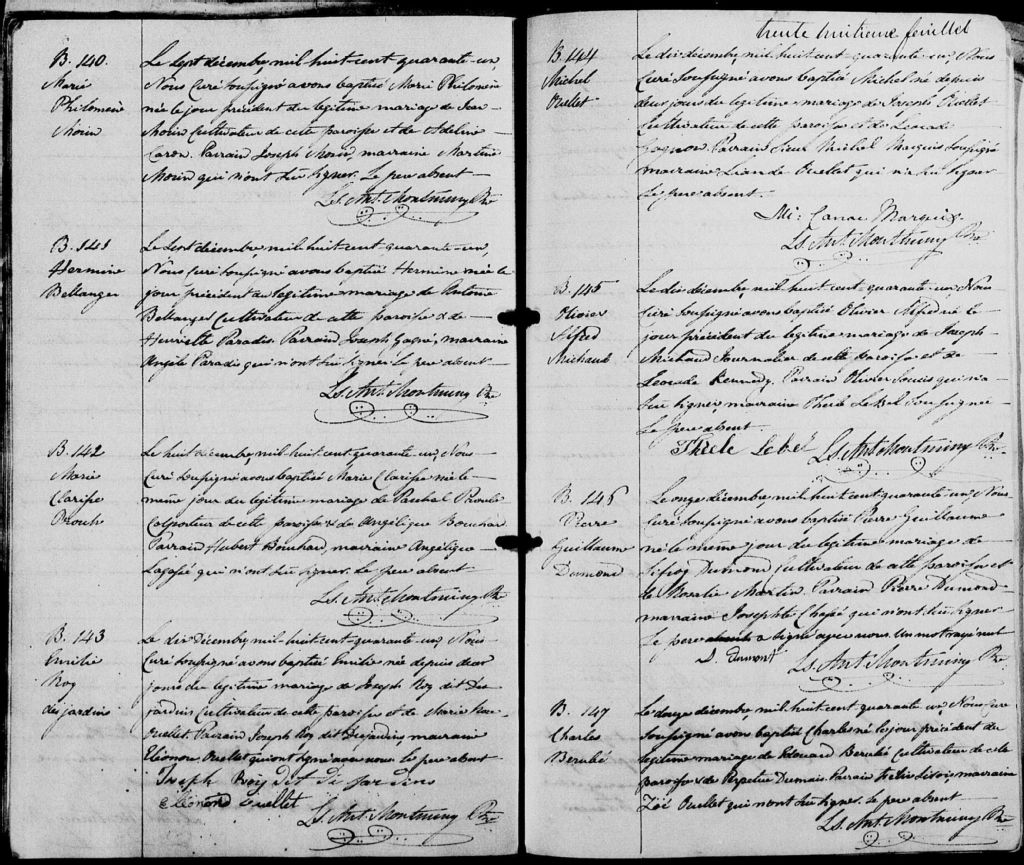 B. 140
Marie
Philomène
Morin
Le sept décembre, mil huit cent quarante un,
Nous Curé soussigné avons baptisé Marie Philomène
née le jour précédent du légitime mariage de Jean
Morin Cultivateur de cette paroisse et de Adeline
Caron. Parrain Joseph Morin, marraine Martine
Morin qui n'ont su signer. Le père absent
Ls. Ant. Montminy Ptre
B. 141
Hermine
Bellanger
Le sept décembre, mil huit cent quarante un,
Nous Curé soussigné avons baptisé Hermine née le
jour précédent du légitime mariage de Antoine
Bellanger Cultivateur de cette paroisse & de
Henriette Paradis. Parrain Joseph Gagné, marraine
Angèle Paradis qui n'ont su signer le père absent
Ls. Ant. Montminy Ptre
B. 142
Marie
Clarisse
Le huit décembre, mil huit cent quarante un, Nous
Curé soussigné avons baptisé Marie Clarisse née le
même jour du légitime mariage de Paschal
Colporteur de cette paroisse & de Angélique Bouchard
Parrain Hubert Bouchard, marraine Angélique
qui n'ont su signer. Le père absent
Ls. Ant. Montminy Ptre
B. 143
Emilie
Roy
desjardins
Le dix Décembre, mil huit cent quarante un, Nous
Curé soussigné avons baptisé Emilie née depuis deux
jours du légitime mariage de Joseph Roy dit Des
jardins Cultivateur de cette paroisse et de Marie
Ouellet. Parrain Joseph Roy dit Desjardins, marraine
Eléonore Ouellet qui ont signé avec nous le père absent
Joseph Roy dit de jardins
Elleonord Ouellet
Ls. Ant. Montminy Ptre
trente huitieme feuillet
B. 144
Michel
Ouellet
Le dix décembre, mil huit cent quarante un, Nous
Curé soussigné avons baptisé Michel né depuis
deux jours du légitime mariage de Joseph Ouellet
Cultivateur de cette paroisse et de Leocade
Gagnon. Parrain Sieur Michel Marquis soussigné
marraine Ouellet qui n'a su signer
Le père absent.
Mi: Canac Marquis
Ls. Ant. Montminy Ptre
B. 145
Olivier
Alfred
Michaud
Le dix décembre, mil huit cent quarante un Nous
Curé soussigné avons baptisé Olivier Alfred né le
jour précédent du légitime mariage de Joseph
Michaud Journalier de cette paroisse et de
Leocade Kennedy. Parrain Olivier Soucis qui n'a
su signer, marraine Thecle LeBel soussignée
Le père absent.
Thecle Lebel Ls. Ant. Montminy Ptre
B. 146
Pierre
Guillaume
Dumond
Le onze décembre, mil huit cent quarante un, Nous
Curé soussigné avons baptisé Pierre Guillaume
né le même jour du légitime mariage de
Sifroy Dumond Cultivateur de cette paroisse et
de Rosalie Martin. Parrain Pierre Dumond
marraine Josephte qui n'ont su signer
Le père a signé avec nous. Un mot rayé nul
S. Dumont
Ls. Ant. Montminy Ptre
B. 147
Charles
Berubé
Le douze décembre, mil huit cent quarante un Nous Curé
soussigné avons baptisé Charles né le jour précédent du
légitime mariage de Edouard Berubé Cultivateur de cette
paroisse & de Perpetue Dumais Parrain Felix marraine
Zoé Ouellet qui n'ont su signer. Le père absent
Ls. Ant. Montminy Ptre